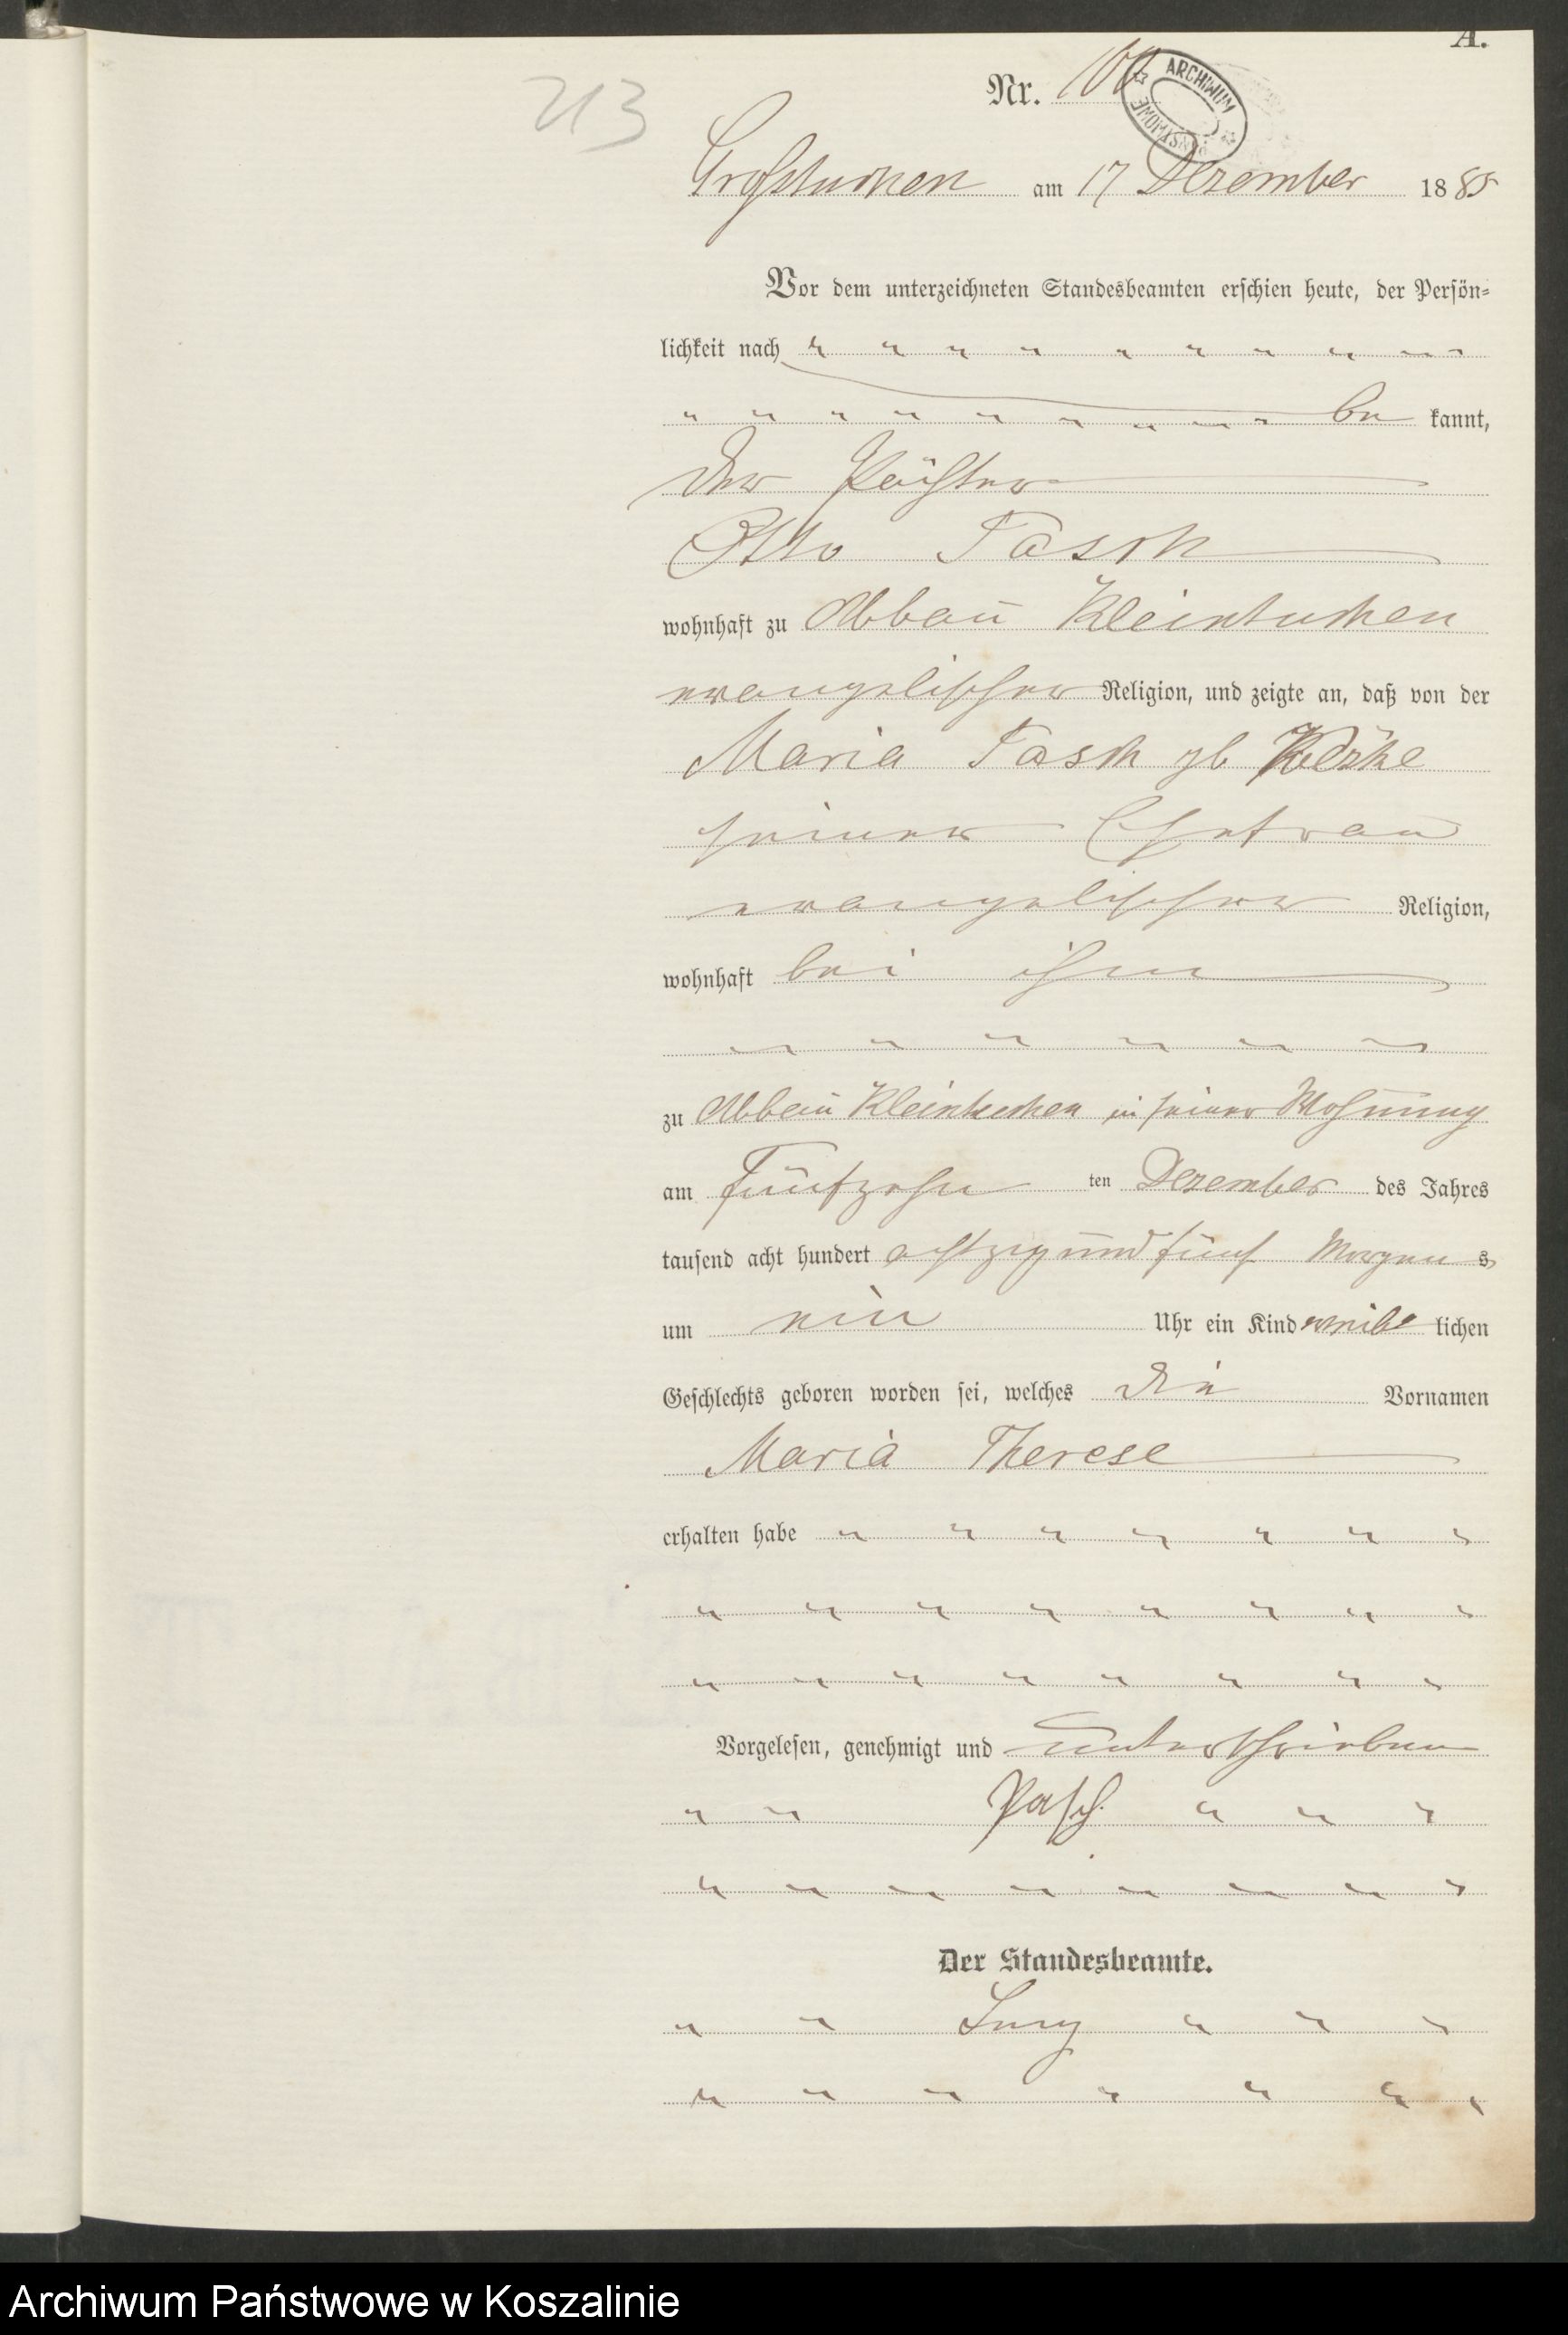 A.
213
Nr. 100
ARCHIWUM
Großtuchen am 17 Dezember 1885
Vor dem unterzeichneten Standesbeamten erschien heute, der Persön-
lichkeit nach
be kannt,
der Pächter
Otto Pasch
wohnhaft zu Abbau Kleintuchen
evangelischer Religion, und zeigte an, daß von der
Maria Pasch gb
seiner Ehefrau
evangelischer Religion,
wohnhaft bei ihm
zu Abbau Kleintuchen in seiner Wohnung
am fünfzehn ten Dezember des Jahres
tausend acht hundert achtzig und fünf Morgens
um ein Uhr ein Kind weib lichen
Geschlechts geboren worden sei, welches die Vornamen
Maria Therese
erhalten habe
Vorgelesen, genehmigt und unterschrieben
Pasch.
Der Standesbeamte.
Archiwum Państwowe w Koszalinie